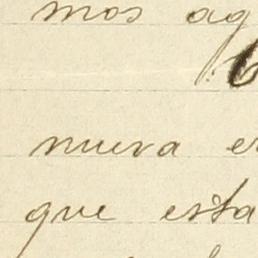 mos ag
nueva e
que esta